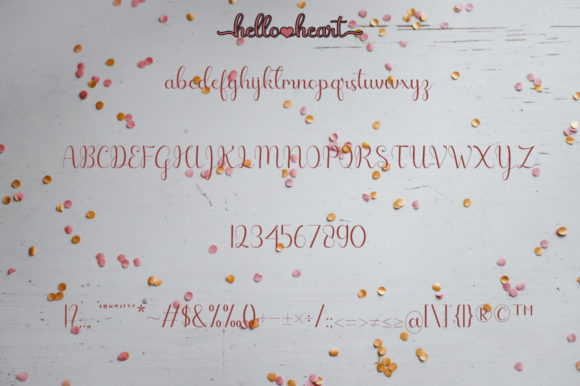 hello heart
abcdefghijklmnopqrstuvwxyz
ABCDEFGHIJKLMNOPQRSTUVWXYZ
1234567890
!?.,*~#$&%‰()+−±×÷/:;<=>≠≤≥@[\]{|}®©™